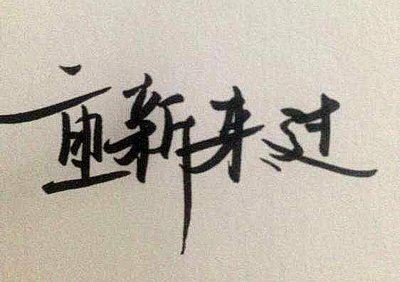 重新来过